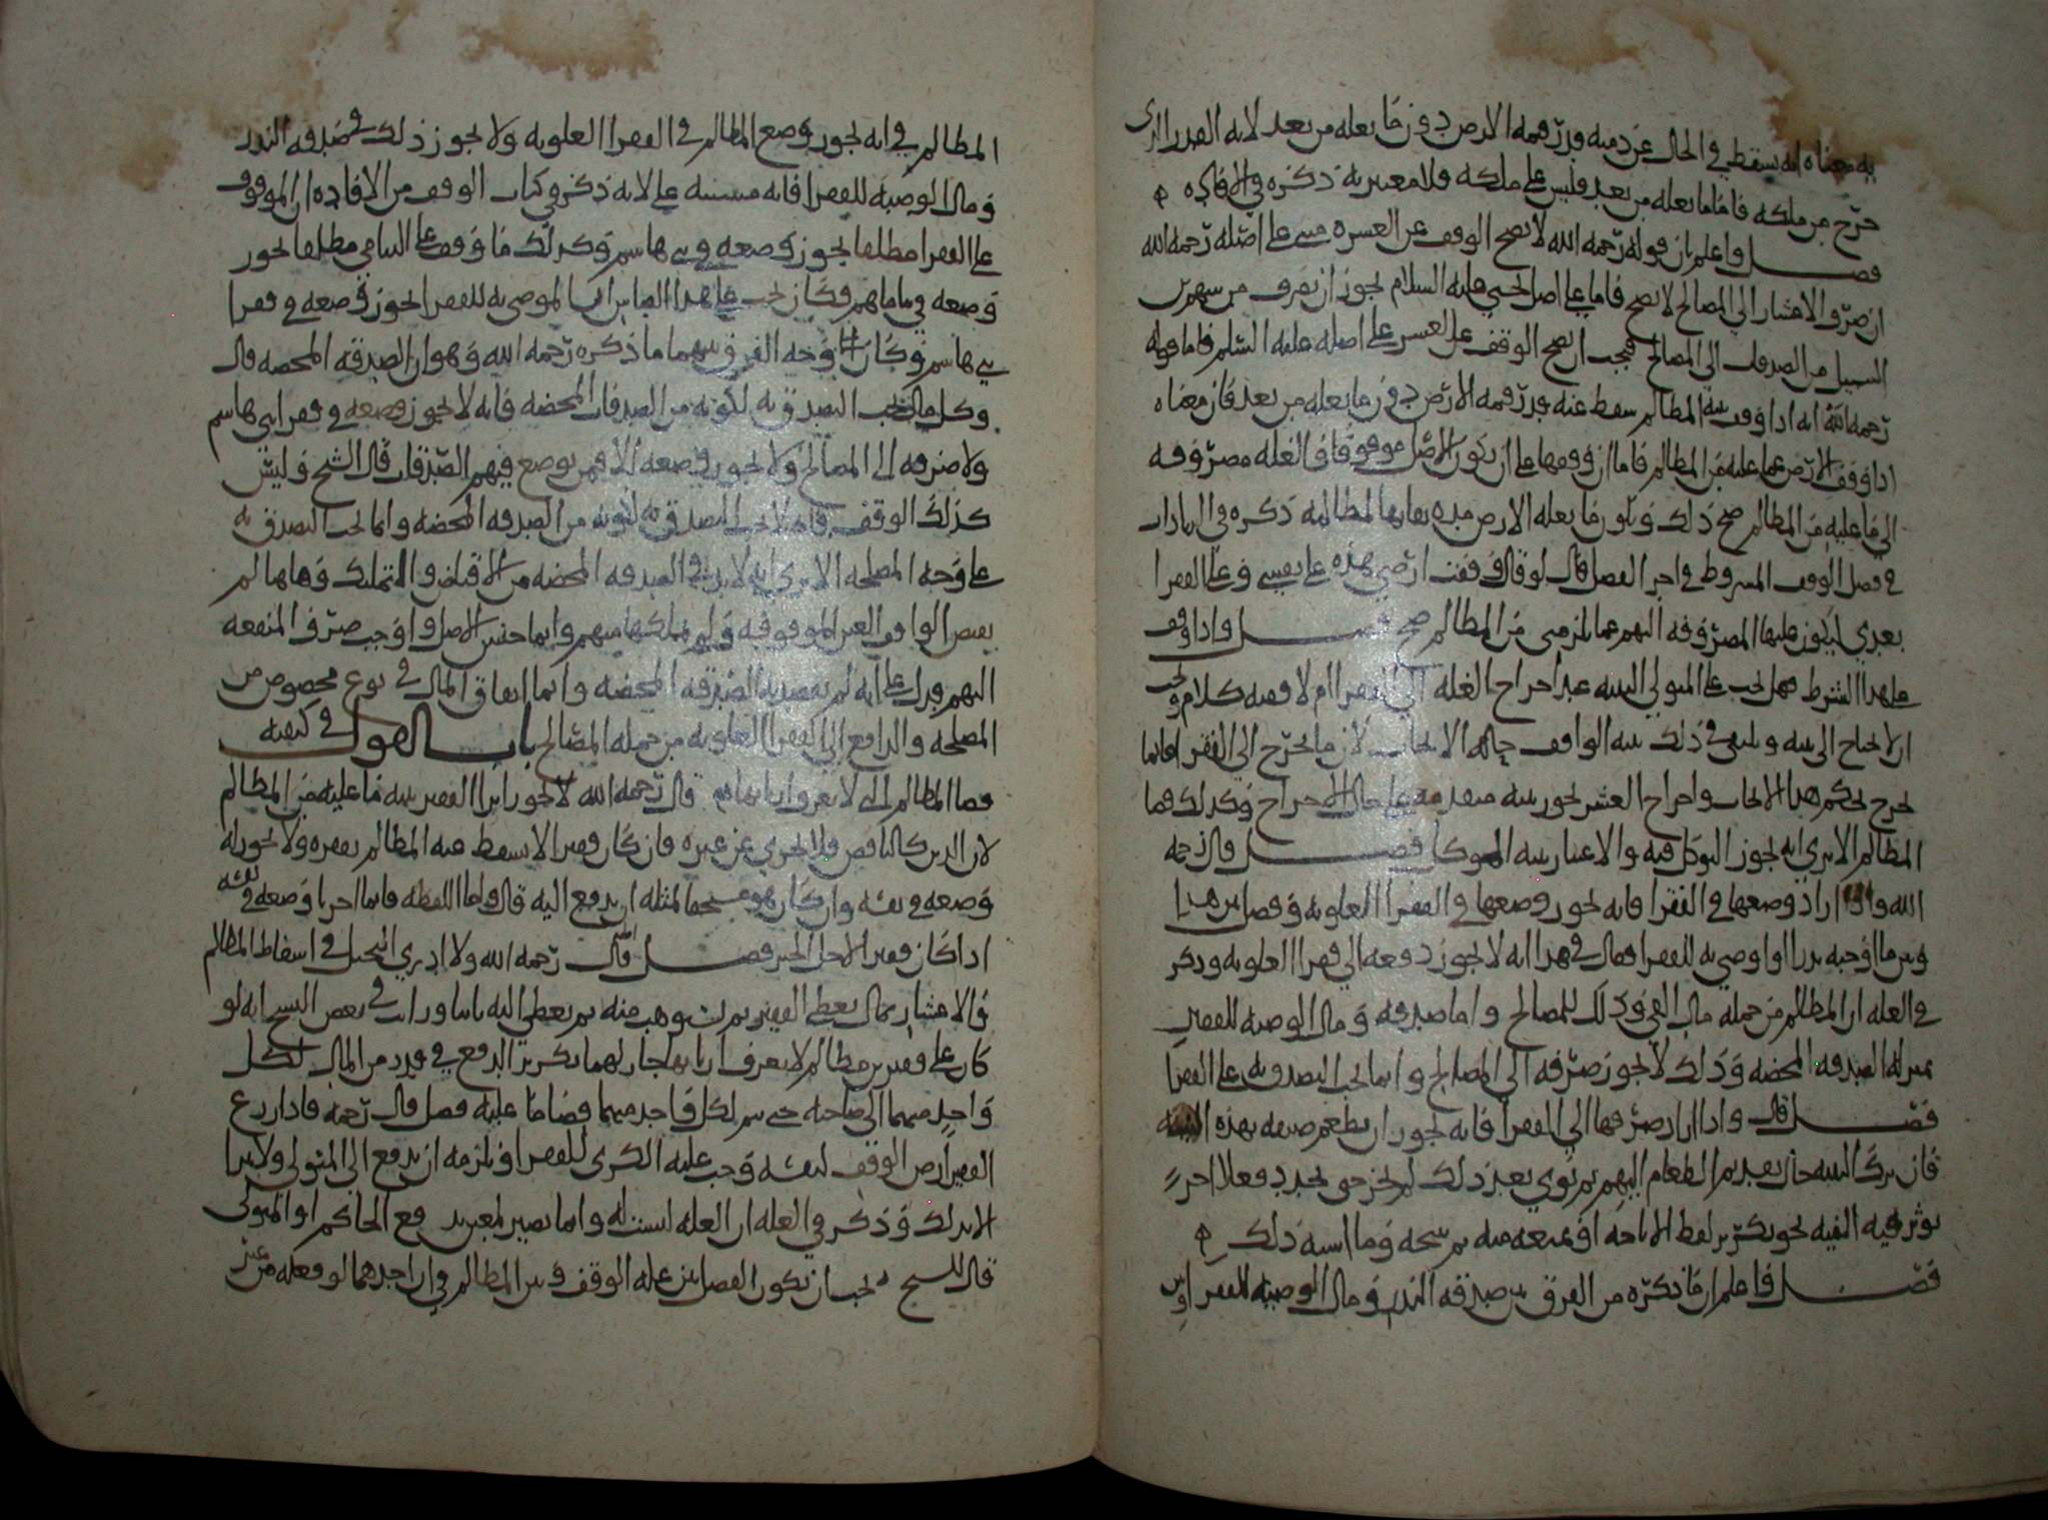 به معناه انه يسقط في الحال عن ذمته قدر قيمة الارض دون ما تغله من بعد لانه القدر الذي
خرج من ملكه فاما ما تغله من بعد فليس على ملكه فلا معتبر به ذكره في الافاده
فصل واعلم بان قوله رحمه الله لا يصح الوقف عن العشر مبني على اصله رحمه الله
ان صرف الاعشار الى المصالح لا يصح فاما على اصل الهادي عليه السلام يجوز ان يصرف من سهم بن
السبيل من الصدقات الى المصالح فيجب ان يصح الوقف عن العشر على اصله عليه السلم فاما قوله
رحمه الله انه اذا وقف بنية المظالم سقط عنه قدر قيمة الارض دون ما تغله من بعد فان معناه
اذا وقف الارض عما عليه من المظالم فاما ان وقفها على ان يكون الاصل موقوفا في الغله مصروفه
الى ما عليه من المظالم صح ذلك ويكون ما تغله الارض مده بقايها لمظالمه ذكره في الزيادات
في فصل الوقف المشروط في اخر الفصل قال لو قال وقفت ارضي هذه على نفسي وعلى الفقرا
بعدي ليكون غلتها المصروفه اليهم عما يلزمني من المظالم صح فصل واذا وقف
على هذا الشرط فهل يجب على المتولي النيه عند اخراج الغله الى الفقرا ام لا فيه كلام ويجب
ان لا يحتاج الى نيه ويكفي في ذلك نية الواقف حاله الايجاب لان ما يخرج الى الفقرا فانما
يخرج بحكم هذا الايجاب واخراج العشر يجوز بنيه متقدمه على حال الاخراج وكذلك فيما
المظالم الا ترى انه يجوز التوكل فيه والاعتبار بنية الموكل فصل قال رحمه
الله واذا اراد وضعها في الفقرا فانه يجوز وضعها في الفقرا العلويه وفصل بين هذا
وبين ما اوجبه نذرا او اوصى به للفقرا فقال في هذا انه لا يجوز دفعه الى فقرا العلويه وذكر
في العله ان المظالم من جملة مال الفي وذلك للمصالح واما صدقه ومال الوصيه للفقرا
بمنزلة الصدقه المحضه وذلك لا يجوز صرفه الى المصالح وانما يجب التصدق به على الفقرا
فصل قال واذا اراد صرفها الى الفقرا فانه يجوز ان يطعم صنفه بهذه النيه
فان ترك النيه حال تقديم الطعام اليهم ثم نوى بعد ذلك لم يجز حتى يجدد فعلا اخر
يوثر فيه النيه نحو تكرير لفظ الاباحه او يمنعه منه ثم يبيحه وما اشبه ذلك
فصل فاعلم ان ما ذكره من الفرق بين صدقه النذر ومال الوصيه للفقرا وبين
المظالم في انه يجوز وضع المظالم في الفقرا العلويه ولا يجوز ذلك في صدقه النذر
ومال الوصيه للفقرا فانه يبتني على لانه ذكر في كتاب الوقف من الافاده ان الموقوف
على الفقرا مطلقا يجوز وضعه في بني هاشم وكذلك ما وقف على اليتامى مطلقا يجوز
وضعه في يتاماهم فكان يجب على هذا القياس ان الموصى به للفقرا يجوز وضعه في فقرا
بني هاشم وكان وجه الفرق بينهما ما ذكره رحمه الله وهو ان الصدقه المحضه قال
وكل مال يجب التصدق به لكونه من الصدقات المحضه فانه لا يجوز وضعه في فقرا بني هاشم
ولا صرفه الى المصالح ولا يجوز وضعه الا فيمن يوضع فيهم الصدقات قال الشيخ وليس
كذلك الوقف فانه لا يجب التصدق به لكونه من الصدقه المحضه وانما يجب التصدق به
على وجه المصلحه الا ترى انه لا بد في الصدقه المحضه من الاقباض والتمليك وهاهنا لم
يقبض الواقف العين الموقوفه ولم يملكها منهم وانما حبس الاصل واوجب صرف المنفعه
اليهم فدل على انه لم يقصد به الصدقه المحضه وانما انفاق المال في نوع مخصوص من
المصلحه والدافع الى الفقرا العلويه من جمله المصالح باب القول في كيفيه
قضا المظالم التي لا يعرف اربابها قال رحمه الله لا يجوز ابرا الفقير بنية ما عليه من المظالم
لان الدين كالناقص فلا يجزي عن غيره فان كان فقيرا لا يسقط عنه المظالم بفقره ولا يجوز له
وضعه في نفسه وان كان هو مستحقا لمثله ان يدفع اليه قال واما اللقطه فانما اجزا وضعه في نفسه
اذا كان فقيرا لاجل الخبر فصل قال رحمه الله ولا ادري التحيل في اسقاط المظالم
والاعشار بمال يعطى الفقير ثم يستوهب منه ثم يعطى اليه ثانيا ورايت في بعض النسخ انه لو
كان على فقيرين مظالم لا يعرف اربابها جاز لهما تكرير الدفع في قدر من المال لكل
واحد منهما الى صاحبه حتى يتم لكل واحد منهما قضا ما عليه فصل قال رحمه فاذا زرع
الفقير ارض الوقف لنفسه وجب عليه الكرى للفقرا ويلزمه ان يدفع الى المتولي ولا يبرا
الا بذلك وذكر في العله ان العله ليست له وانما تصير لمعين بدفع الحاكم او المتولي
قال الشيخ يجب ان يكون الفصل بين غلة الوقف وبين المظالم في ان احدهما لو فعله من غير